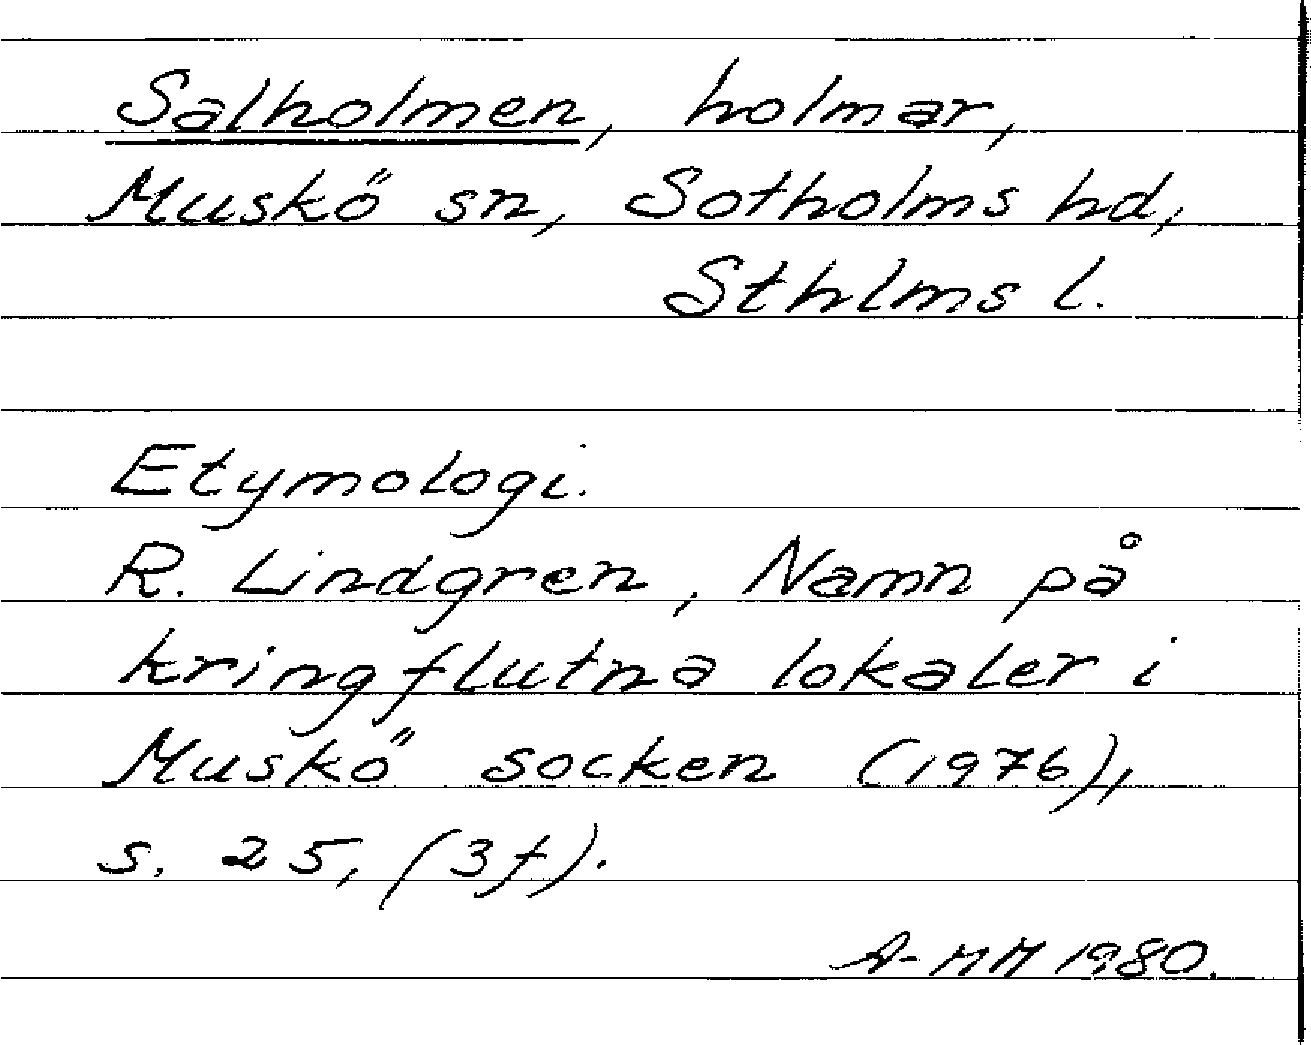 Salholmen, holmar,
Muskö sn, Sotholms hd,
Sthlms l.
Etymologi.
R. Lindgren, Namn på
kringflutna lokaler i
Muskö socken (1976),
s. 25, (3f).
A-MM 1980.